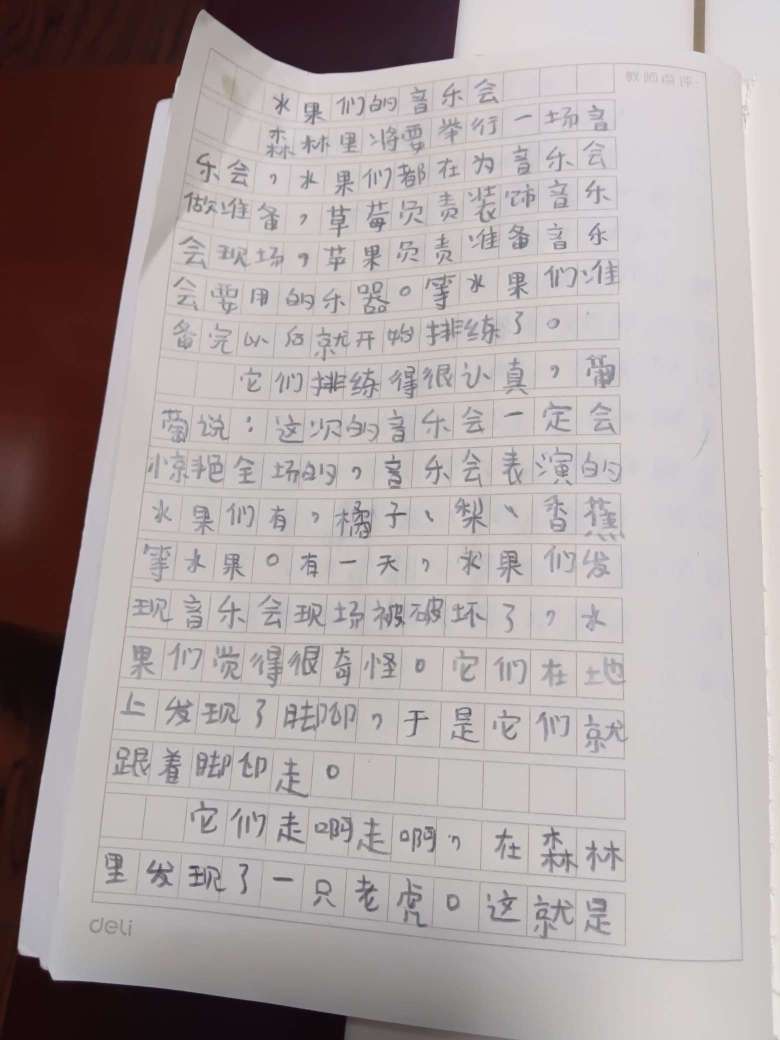 水果们的音乐会
森林里将要举行一场音
乐会，水果们都在为音乐会
做准备，草莓负责装饰音乐
会现场，苹果负责准备音乐
会要用的乐器。等水果们准
备完以后就开始排练了。
它们排练得很认真，葡
萄说：这次的音乐会一定会
惊艳全场的，音乐会表演的
水果们有，橘子、梨、香蕉
等水果。有一天，水果们发
现音乐会现场被破坏了，水
果们觉得很奇怪。它们在地
上发现了脚印，于是它们就
跟着脚印走。
它们走啊走啊，在森林
里发现了一只老虎。这就是
deli